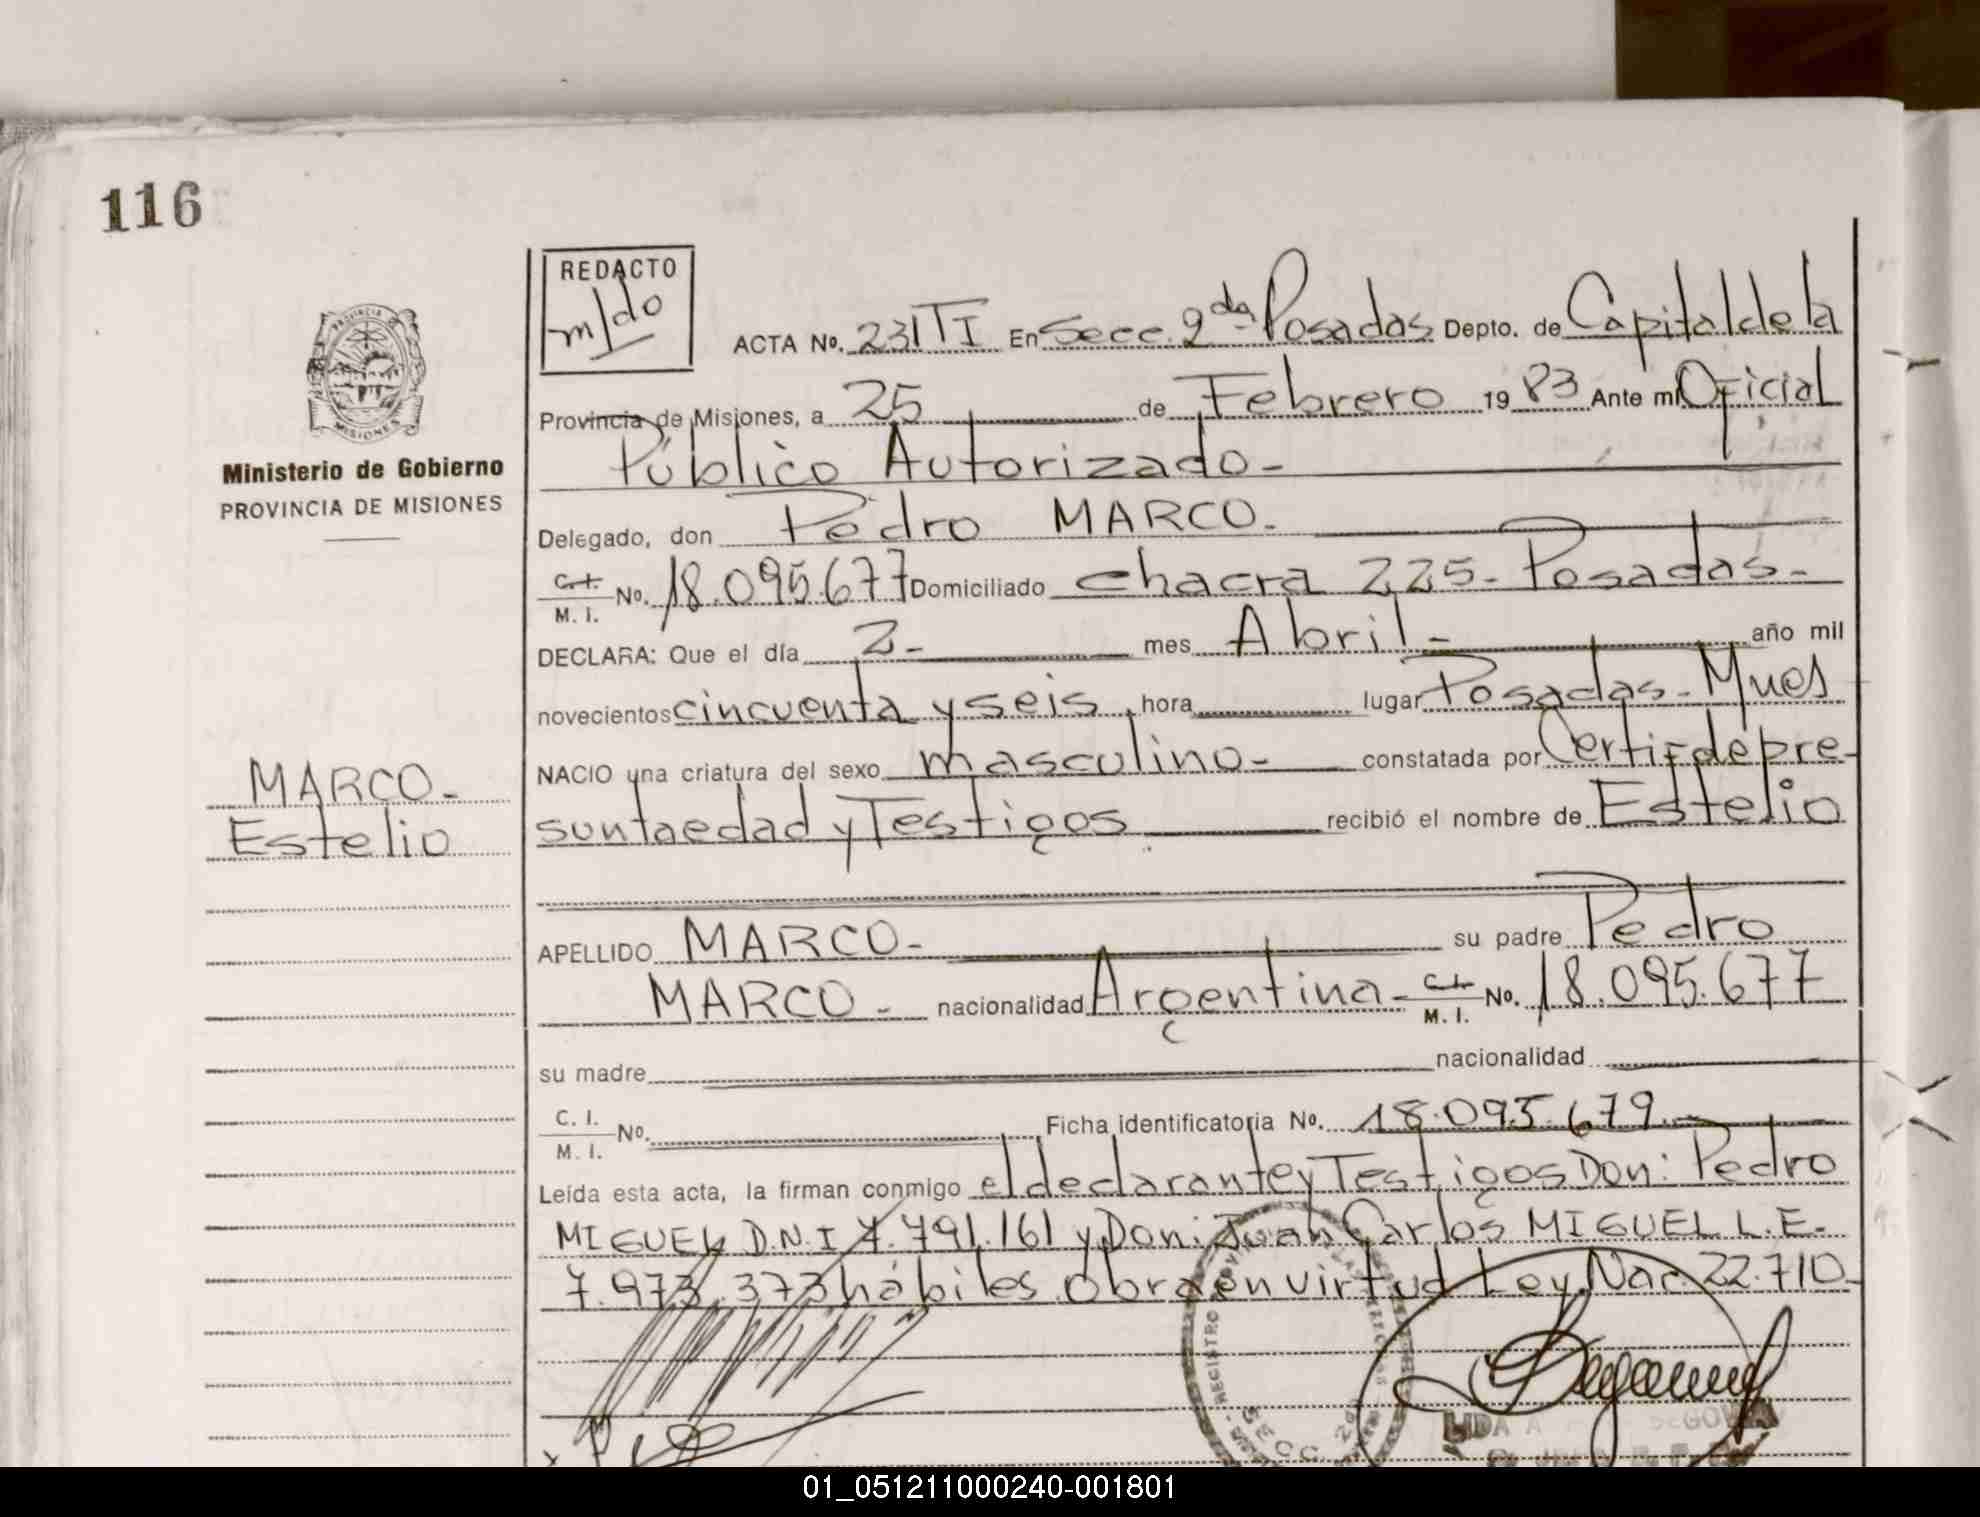 116
REDACTO
m/do
PROVINCIA DE
MISIONES
Ministerio de Gobierno
PROVINCIA DE MISIONES
ACTA No. 231 TI En Secc. 2da Posadas Depto. de Capital de la
Provincia de Misiones, a 25 de Febrero 1983 Ante mi Oficial
Público Autorizado-
Delegado, don Pedro MARCO.
C.I. M. I. No. 18.095.677 Domiciliado chacra 225- Posadas-
DECLARA: Que el día 2- mes Abril- año mil
novecientos cincuenta y seis, hora lugar Posadas- Mnes
NACIO una criatura del sexo masculino- constatada por Certif de pre-
sunta edad y Testigos recibió el nombre de Estelio
MARCO-
Estelio
APELLIDO MARCO- su padre Pedro
MARCO- nacionalidad Argentina- C.I. M. I. No. 18.095.677
su madre nacionalidad
C. I. M. I. No. Ficha identificatoria No. 18.095.679.-
Leída esta acta, la firman conmigo el declarante y Testigos Don: Pedro
MIGUEL D.N.I 7.791.161 y Don: Juan Carlos MIGUEL L.E.
7.973.373 hábiles obra en virtud Ley Nac. 22.710-
REGISTRO
SECC. 2da
01_051211000240-001801